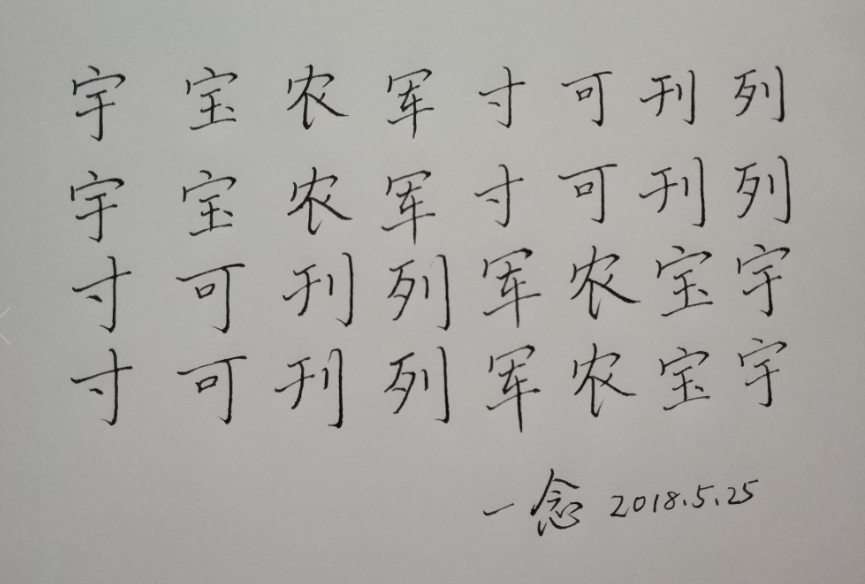 宇 宝 农 军 寸 可 刊 列
宇 宝 农 军 寸 可 刊 列
寸 可 刊 列 军 农 宝 宇
寸 可 刊 列 军 农 宝 宇
一念 2018.5.25